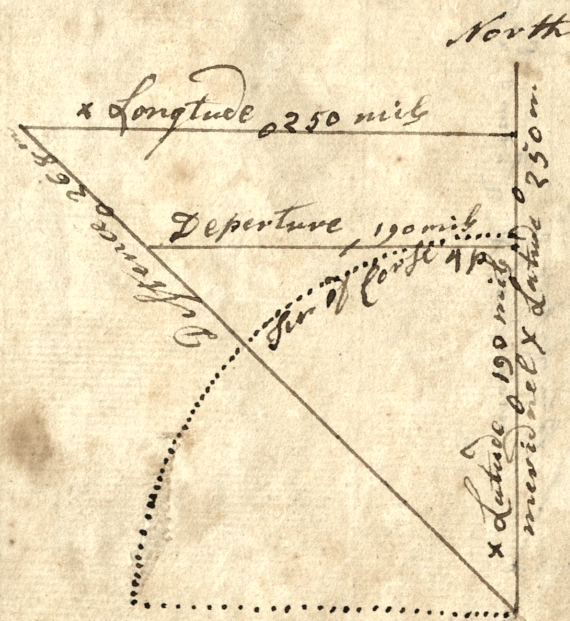 North
x Longtude 0250 mils
Distence 0268 m
Deperture , 190 mils
of Corse 4 p
x Latude 190 mils
meridnel x Latude 0 250 m